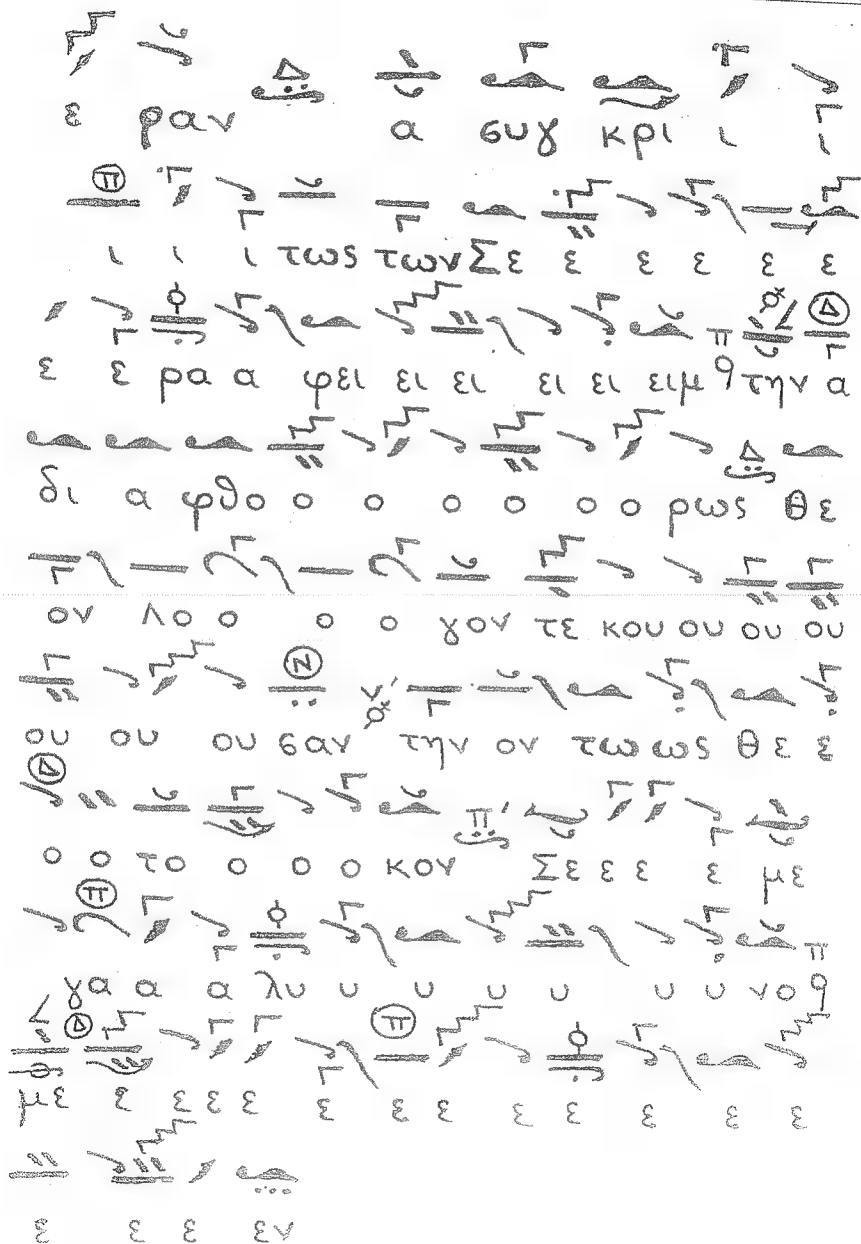 ε ραν α συγ κρι ι ι
ι ι ι τως των Σε ε ε ε ε ε
ε ε ρα α φει ει ει ει ει ειμ την α
δι α φθο ο ο ο ο ο ο ρως Θε
ον λο ο ο ο γον τε κου ου ου ου
ου ου ου σαν την ον τω ως Θε ε
ο ο το ο ο ο κον Σε ε ε ε με
γα α α λυ υ υ υ υ υ υ νο
με ε ε ε ε ε ε ε ε ε ε ε ε
ε ε ε εν